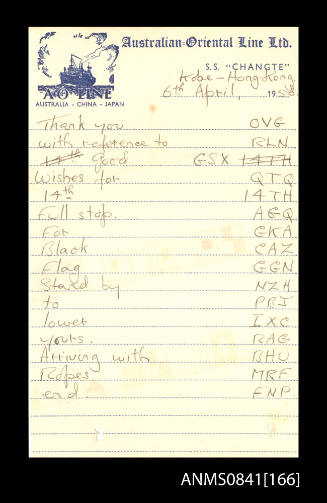 Australian-Oriental Line Ltd.
A·O LINE
AUSTRALIA - CHINA - JAPAN
S.S. "CHANGTE"
Kobe - Hong Kong
6th April, 1958
Thank you OVG
with reference to BLN
14th Good GSX 14TH
Wishes for QTQ
14th 14TH
Full stop. AGQ
For GKA
Black CAZ
Flag GGN
Stand by NZH
to PBJ
lower IXC
yours. BAG
Arriving with BHU
Ropes MRF
end. FNP
ANMS0841[166]